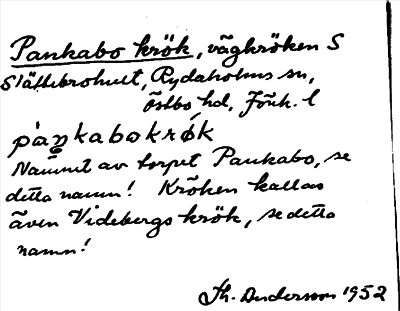 Pankabo krök, vägkröken S
Slättebrohult, Rydaholms sn,
Östbo hd, Jönk. l
pàŋkabokrǿk
Namnet av torpet Pankabo, se
detta namn! Kröken kallas
även Videbergs krök, se detta
namn!
Th. Anderson 1952